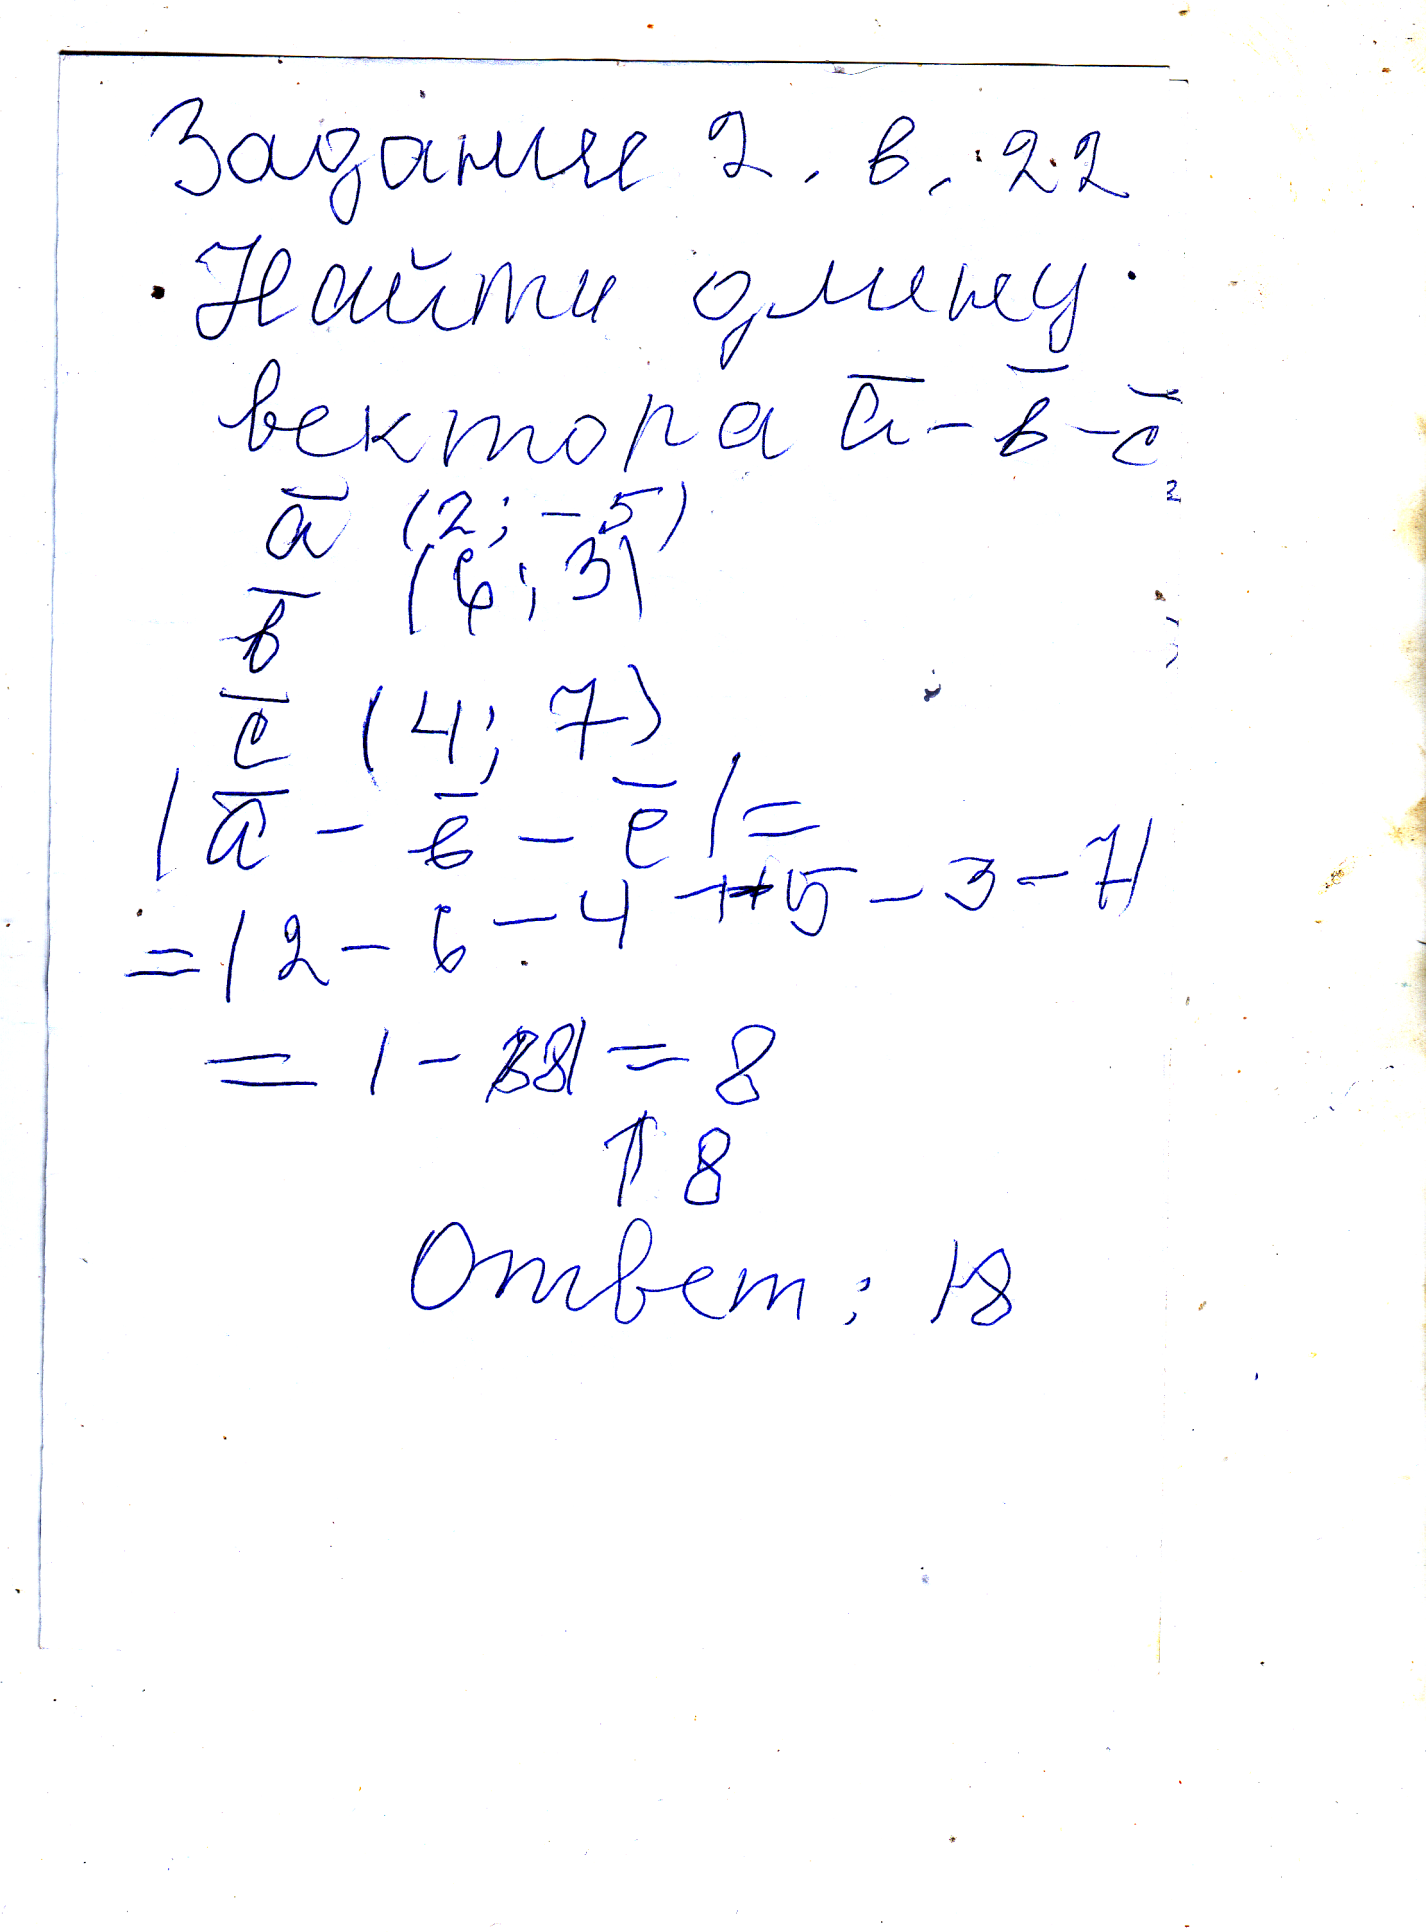 Задание 2. в. 22
Найти длину
вектора a̅ - в̅ - c̅
a̅ (2; -5)
в̅ (6; 3)
c̅ (4; 7)
|a̅ - в̅ - c̅| =
= |2 - 6 - 4 + 5 - 3 - 7|
= | - 8| = 8
18
Ответ: 18